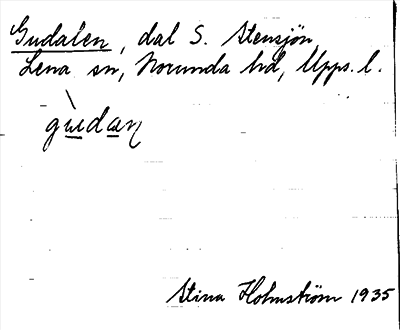 Gudalen, dal S. Stensjön
Lena sn, Norunda hd, Upps. l.
gùdaɳ
Stina Holmström 1935